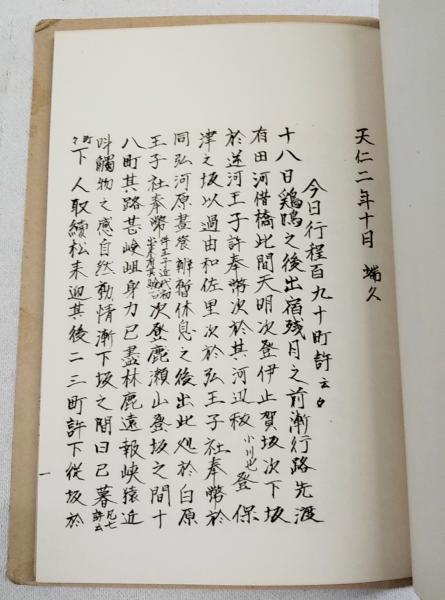 天仁二年十月 端欠
今日行程百九十町許云々
十八日鶏鳴之後出宿残月之前漸行路先渡
有田河借橋此間天明次登伊止賀坂次下坂
於逆河王子許奉幣次於其河辺秡小川也登保
津之坂以過由和佐里次於弘王子社奉幣於
同弘河原晝養辨暫休息之後出此処於白原
王子社奉幣許王子近代初出来有其験云々次登鹿瀬山登坂之間十
八町其路甚嶮岨身力已盡林鹿遠報峡猿近
叫觸物之感自然動情漸下坂之間日已暮凡七許云
町々下人取續松来迎其後二三町許下従坂於
一